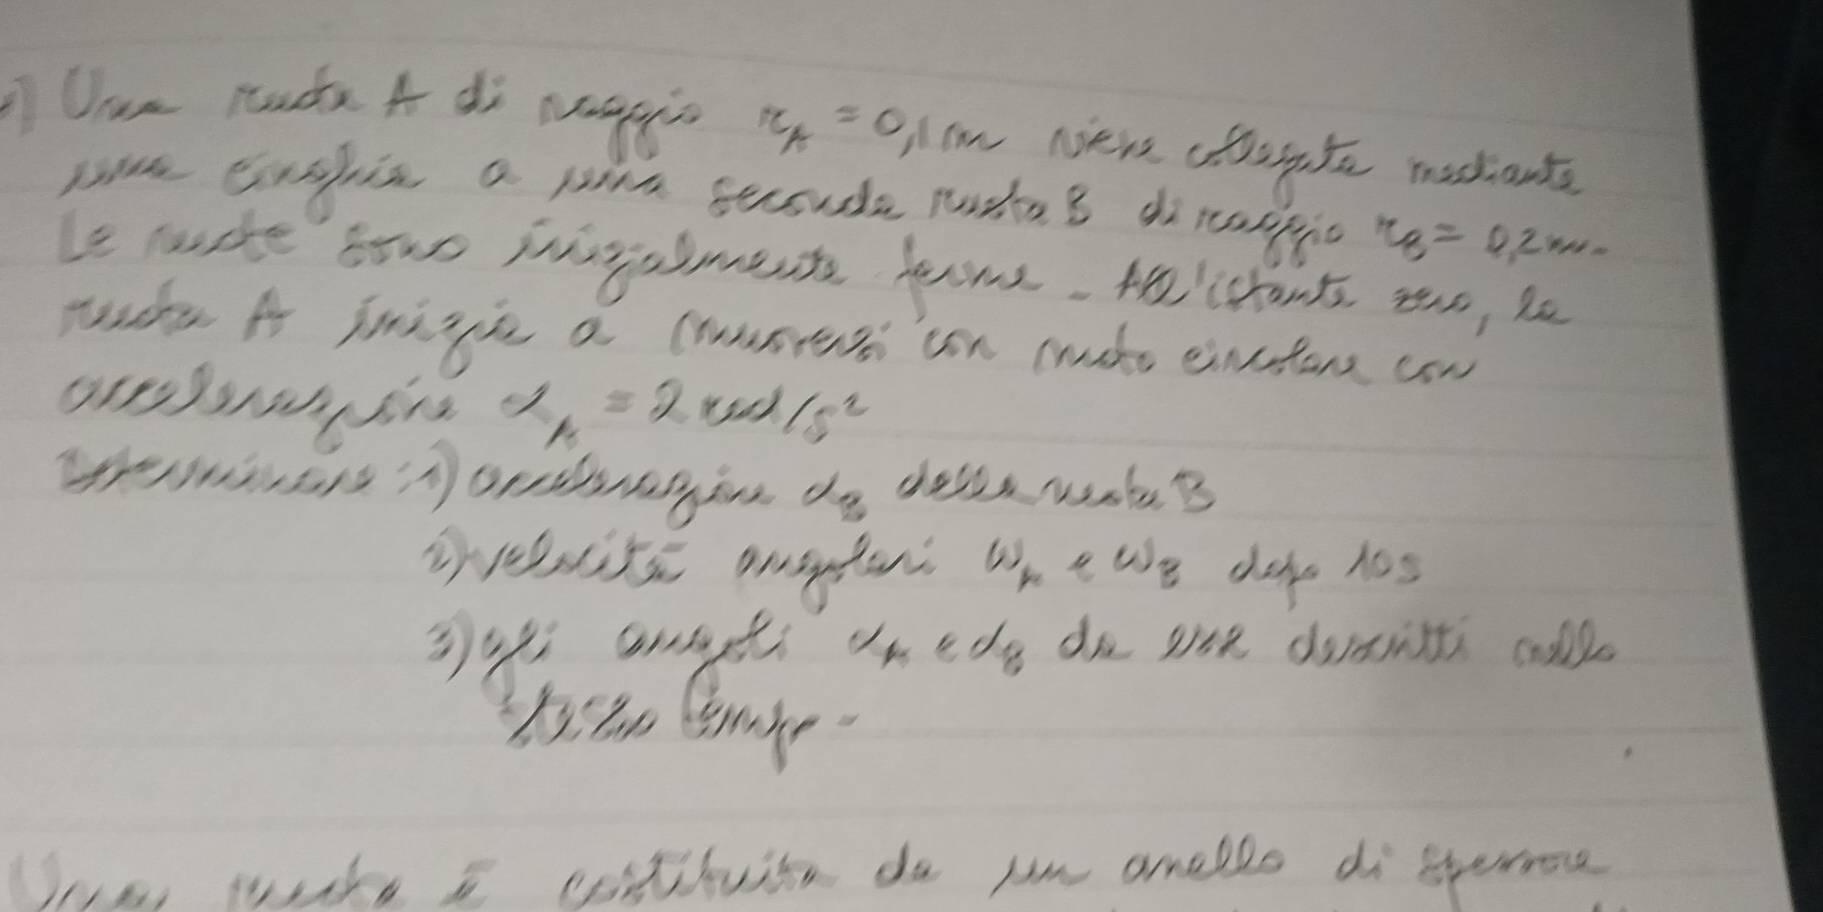 Una ruota A di raggio r_A = 0,1 m viene collegata mediante
una cinghia a una seconda ruota B di raggio r_B = 0,2 m.
Le ruote sono inizialmente ferme. All'istante zero, la
ruota A inizia a muoversi con moto circolare con
accelerazione α_A = 2 rad/s²
Determinare: 1) accelerazione α_B della ruota B
2) velocità angolari ω_A e ω_B dopo 10s
3) gli angoli α_A e α_B da esse descritti nello
stesso tempo.
Una ruota è costituita da un anello di spessore